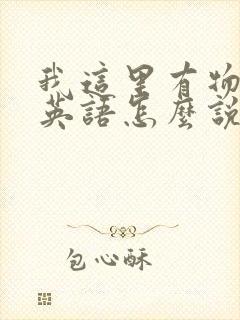 我這里有物
英語怎麼說
包心酥